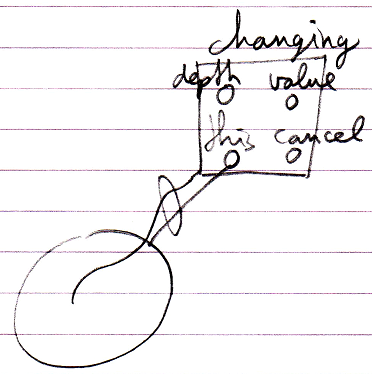 changing
depth value
this cancel